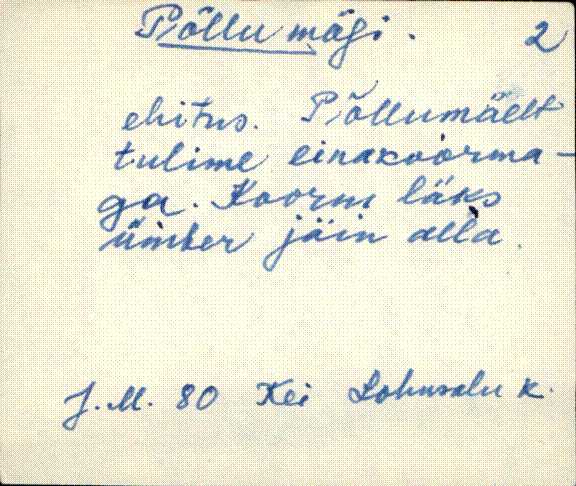 Põllu mägi. 2
ehitus. Põllumäelt
tulime einakoorma-
ga. Koorm läks
ümber jäin alla.
J. M. 80 Kei Lohusalu k.